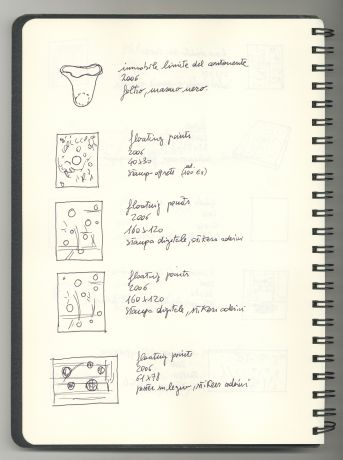 immobile limite del contenente
2006
feltro, marmo nero.
floating points
2006
40x30
stampa offset
floating points
2006
160x120
stampa digitale, stikers adesivi
floating points
2006
160x120
stampa digitale, stikers adesivi
floating points
2006
61x78
su legno, stikers adesivi